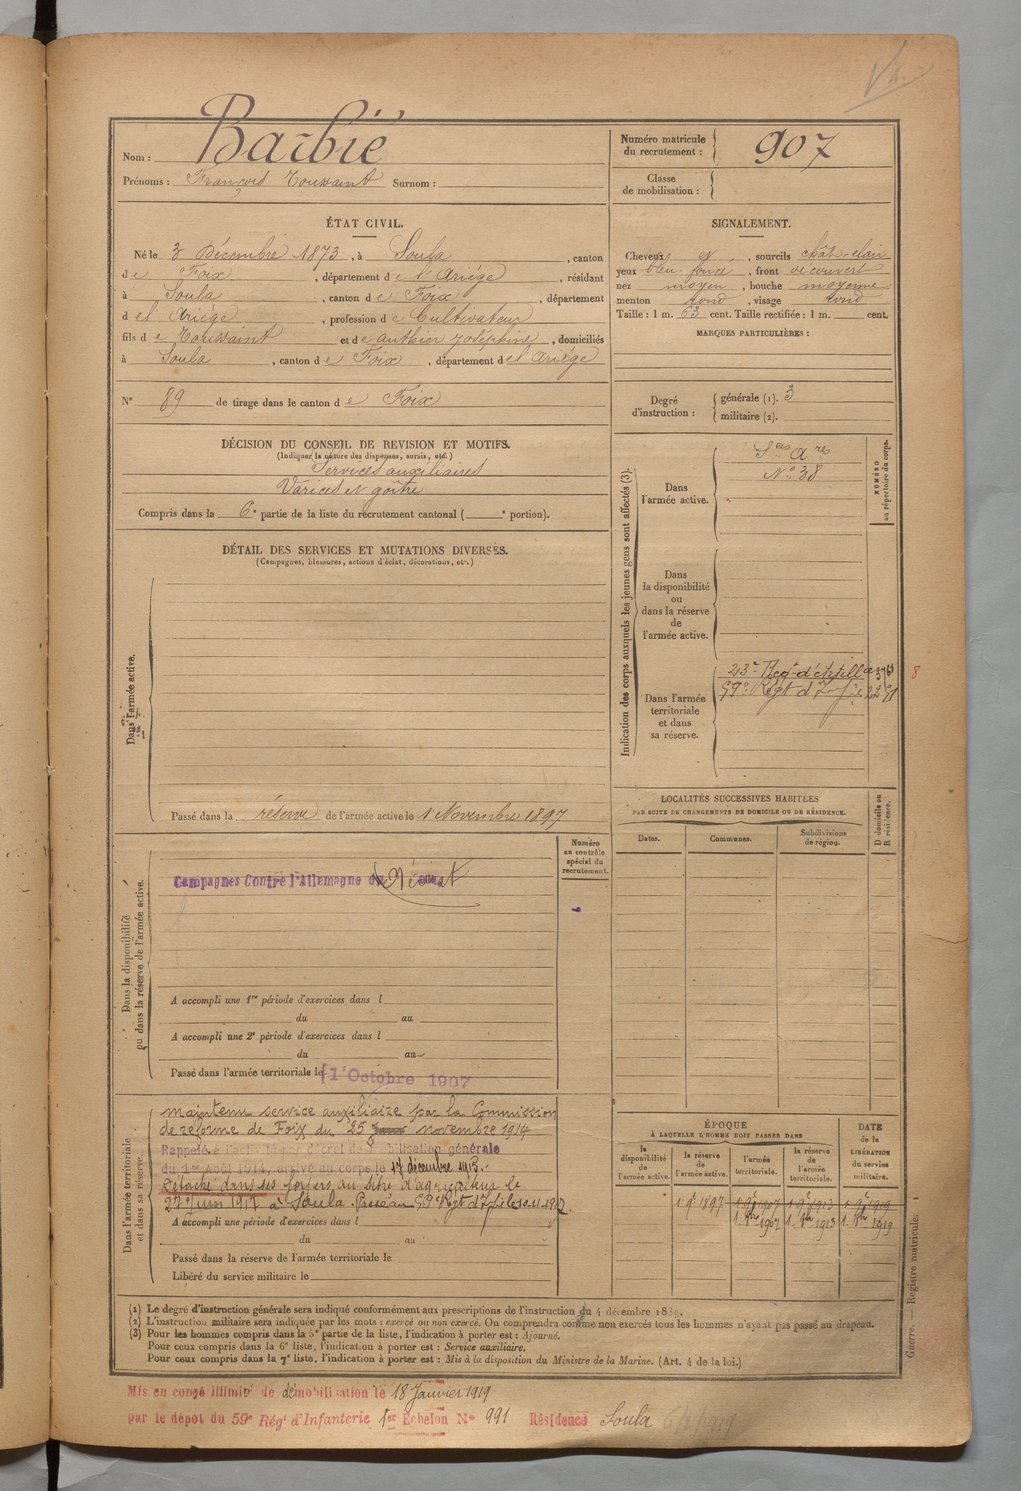 Nom : Barbié
Prénoms : François Toussaint Surnom :
Numéro matricule du recrutement : 907
Classe de mobilisation :
ÉTAT CIVIL.
Né le 3 Décembre 1873, à Soula, canton
de Foix, département de l'Ariége, résidant
à Soula, canton de Foix, département
d el Ariége, profession de Cultivateur
fils de Toussaint et de authier Joséphine, domiciliés
à Soula, canton de Foix, département de l'Ariége
N° 89 de tirage dans le canton de Foix
SIGNALEMENT.
Cheveux et, sourcils chât-clair
yeux bleu foncé, front découvert
nez moyen, bouche moyenne
menton rond, visage rond
Taille : 1 m. 63 cent. Taille rectifiée : 1 m. cent.
MARQUES PARTICULIÈRES :
Degré d'instruction : générale (1). 3
militaire (2).
DÉCISION DU CONSEIL DE REVISION ET MOTIFS.
(Indiquer la nature des dispenses, sursis, etc.)
Services auxiliaires
Varices et goître
Compris dans la 6e partie de la liste du recrutement cantonal ( e portion).
DÉTAIL DES SERVICES ET MUTATIONS DIVERSES.
(Campagnes, blessures, actions d'éclat, décorations, etc.)
Dans l'armée active.
Passé dans la réserve de l'armée active le 1 Novembre 1897
Indication des corps auxquels les jeunes gens sont affectés (3).
NUMÉRO au répertoire du corps.
Dans l'armée active.
Sces Ares
N° 38
Dans la disponibilité ou dans la réserve de l'armée active.
Dans l'armée territoriale et dans sa réserve.
23e Regt d'Artillie
59e Régt d'
8
LOCALITÉS SUCCESSIVES HABITÉES
PAR SUITE DE CHANGEMENTS DE DOMICILE OU DE RÉSIDENCE.
Dates. Communes. Subdivisions de région. D domicile ou R résidence.
Dans la disponibilité ou dans la réserve de l'armée active.
Numéro au contrôle spécial du recrutement.
Campagnes Contre l'Allemagne du Néant
A accompli une 1re période d'exercices dans l
du au
A accompli une 2e période d'exercices dans l
du au
Passé dans l'armée territoriale le 1er Octobre 1907
Dans l'armée territoriale et dans sa réserve.
maintenu service auxiliaire par la Commission
de réforme de Foix du 25 novembre 1914
Rappelé à l'activité par décret de mobilisation générale
du 1er Août 1914, arrivé au corps le 17 décembre 1915.
Détaché dans ses foyers au titre d'agriculteur le
27 Juin 1917 à Soula. Passé au 59e Régt d'
A accompli une période d'exercices dans l
du au
Passé dans la réserve de l'armée territoriale le
Libéré du service militaire le
ÉPOQUE
À LAQUELLE L'HOMME DOIT PASSER DANS
DATE de la LIBÉRATION du service militaire.
la disponibilité de l'armée active. la réserve de l'armée active. l'armée territoriale. la réserve de l'armée territoriale.
1 9e 1897 1 9e 1907 1 9e 1913 1 9e 1919
1 8bre 1907 1. 8bre 1913 1. 8bre 1919
(1) Le degré d'instruction générale sera indiqué conformément aux prescriptions de l'instruction du 4 décembre 1889.
(2) L'instruction militaire sera indiquée par les mots : exercé ou non exercé. On comprendra comme non exercés tous les hommes n'ayant pas passé au drapeau.
(3) Pour les hommes compris dans la 5e partie de la liste, l'indication à porter est : Ajourné.
Pour ceux compris dans la 6e liste, l'indication à porter est : Service auxiliaire.
Pour ceux compris dans la 7e liste, l'indication à porter est : Mis à la disposition du Ministre de la Marine. (Art. 4 de la loi.)
Guerre. — Registre matricule. 1
Mis en congé illimité de démobilisation le 18 Janvier 1919
par le dépôt du 59e Régt d'Infanterie 1er Echelon N° 991 Résidence Soula